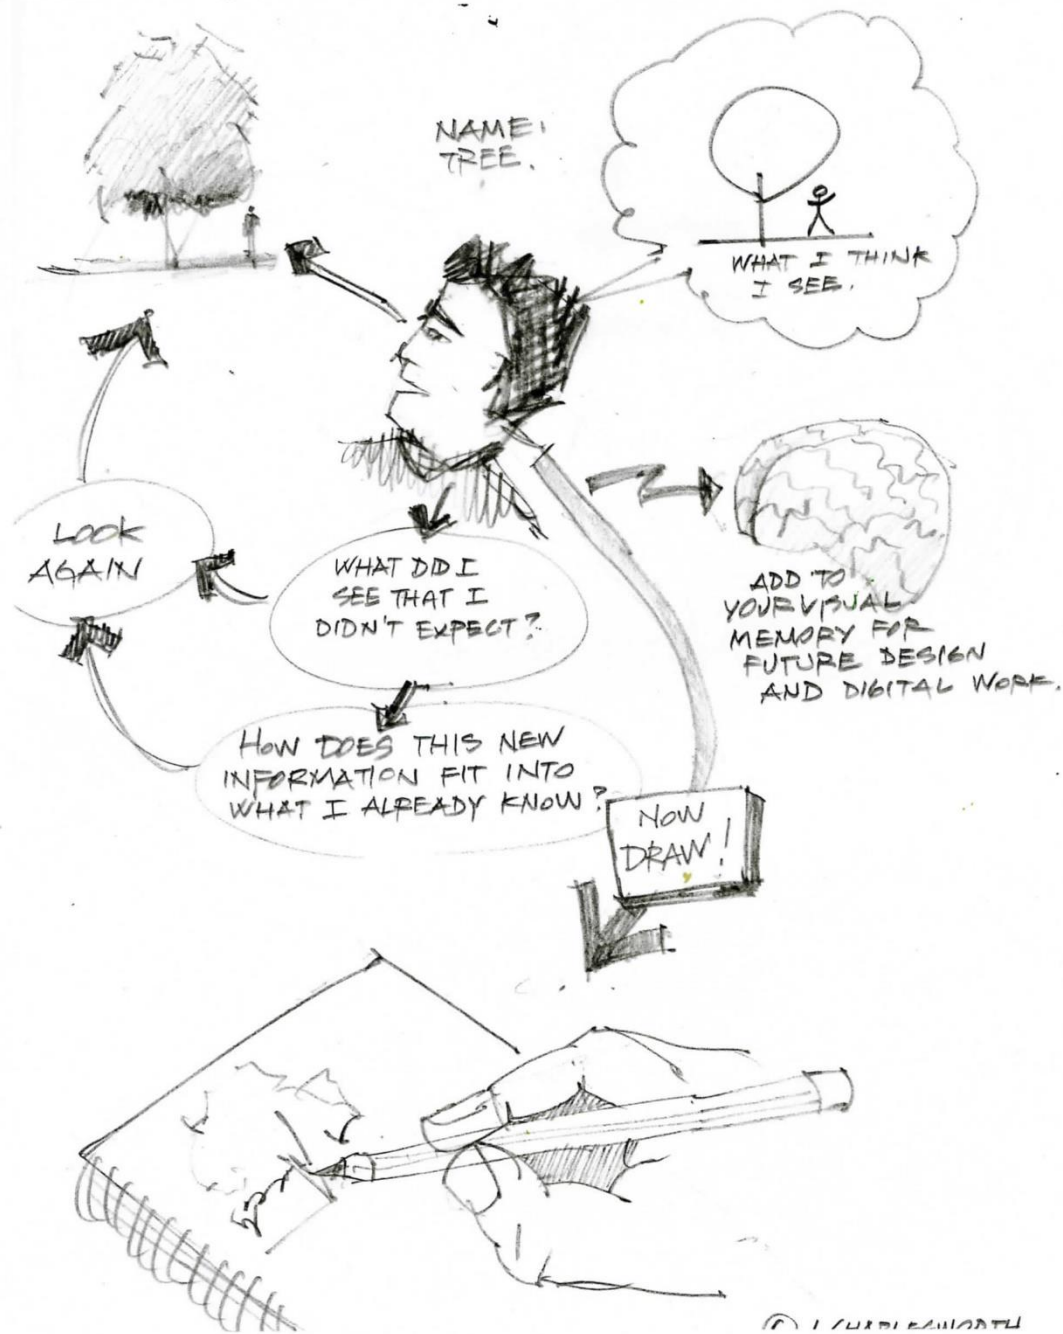 NAME:
TREE.
WHAT I THINK
I SEE.
LOOK
AGAIN
WHAT DID I
SEE THAT I
DIDN'T EXPECT?
ADD TO
YOUR VISUAL
MEMORY FOR
FUTURE DESIGN
AND DIGITAL WORK.
HOW DOES THIS NEW
INFORMATION FIT INTO
WHAT I ALREADY KNOW?
NOW
DRAW!
©